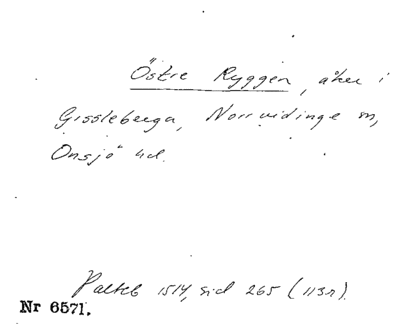 Östre Ryggen, åker i
Gissleberga, Norrvidinge sn,
Onsjö hd.
Palteb 1514, sid 265 (113r).
Nr 6571.